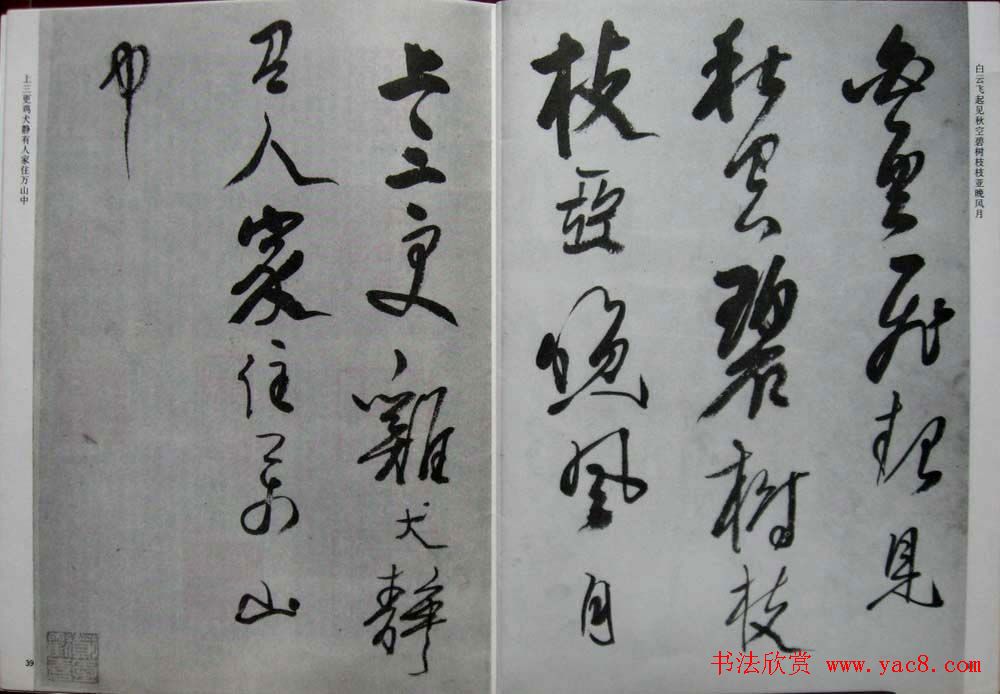 白云飞起见秋空碧树枝枝亚晚风月
白雲飛起見
秋空碧樹枝
枝亞晚風月
上三更雞犬靜
有人家住万山
中
上三更鸡犬静有人家住万山中
39
书法欣赏 www.yac8.com